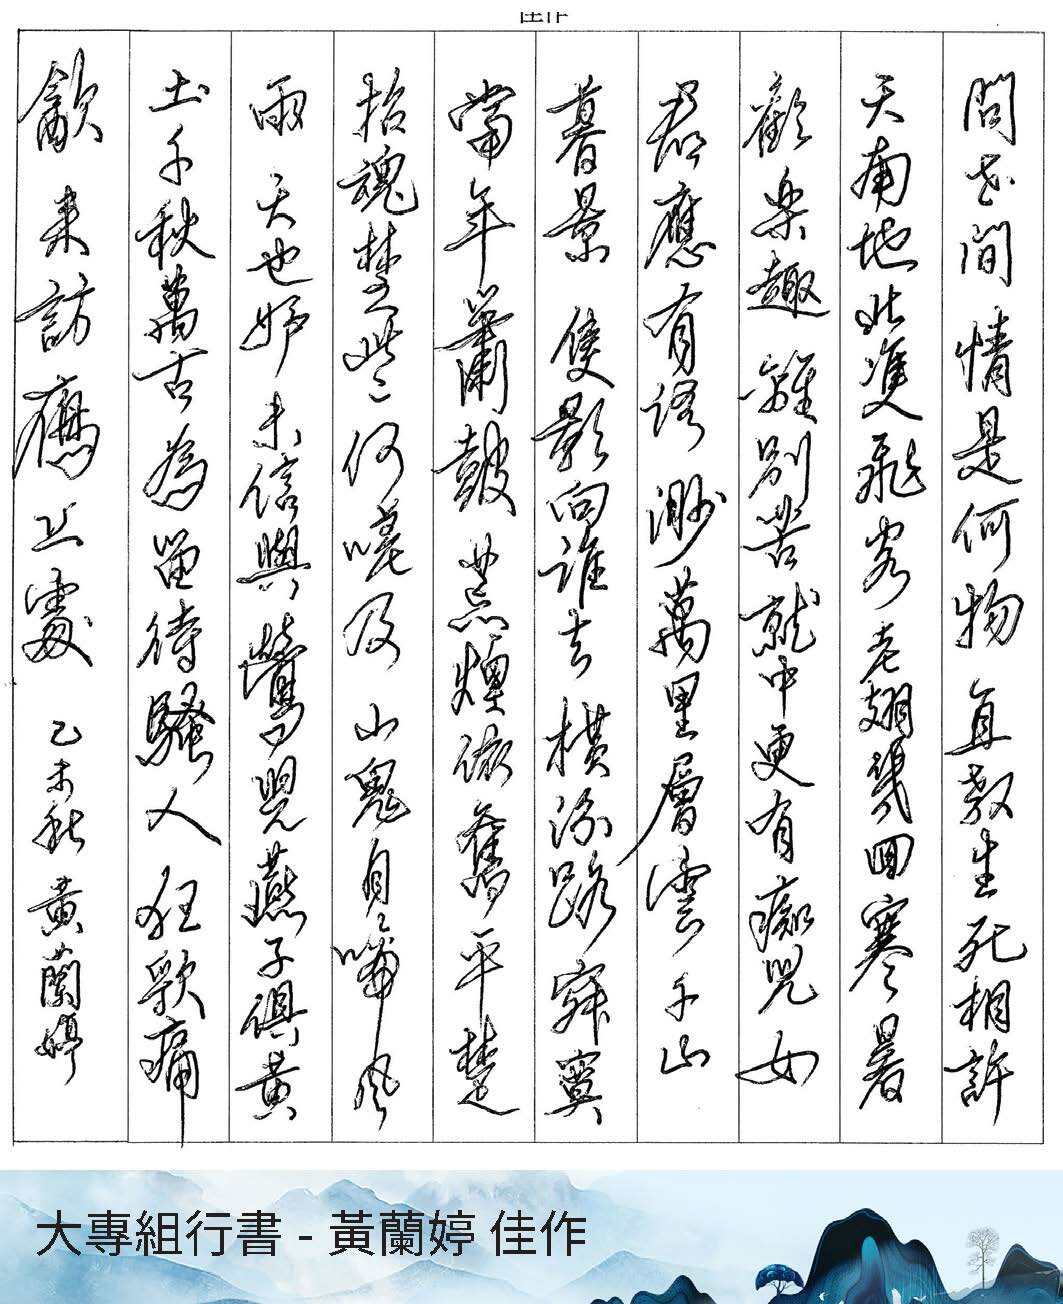 佳作
問世間情是何物 直教生死相許
天南地北雙飛客 老翅幾回寒暑
歡樂趣 離別苦 就中更有癡兒女
君應有語 渺萬里層雲 千山
暮景 隻影向誰去 橫汾路 寂寞
當年簫鼓 荒煙依舊平楚
招魂楚些何嗟及 山鬼自啼風
雨 天也妒 未信與 鶯兒燕子俱黃
土 千秋萬古 為留待騷人 狂歌痛
飲 來訪雁丘處 乙未秋 黃蘭婷
大專組行書 - 黃蘭婷 佳作